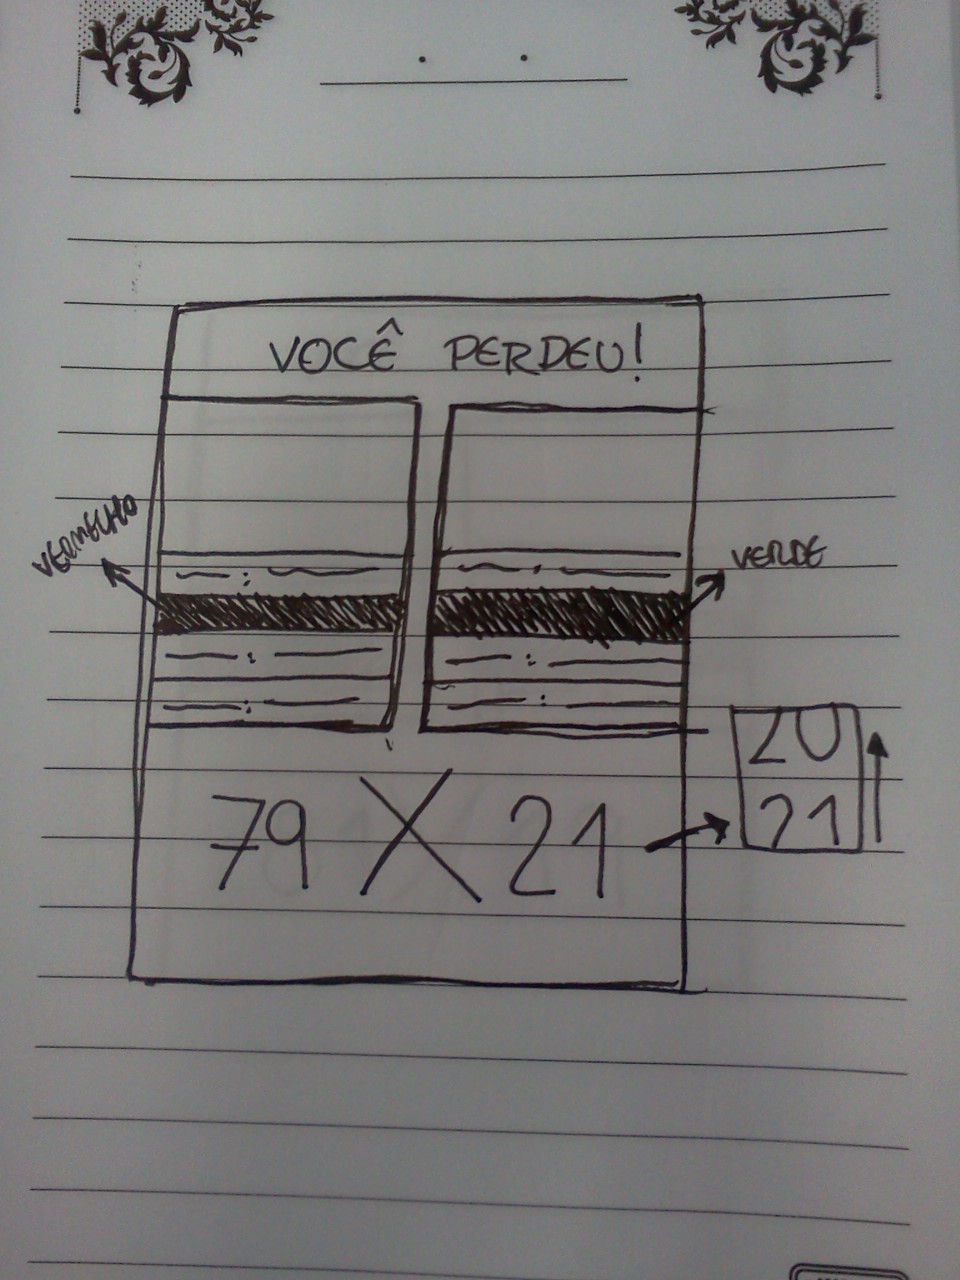 VOCÊ PERDEU!
VERMELHO
VERDE
20
21
79 X 21